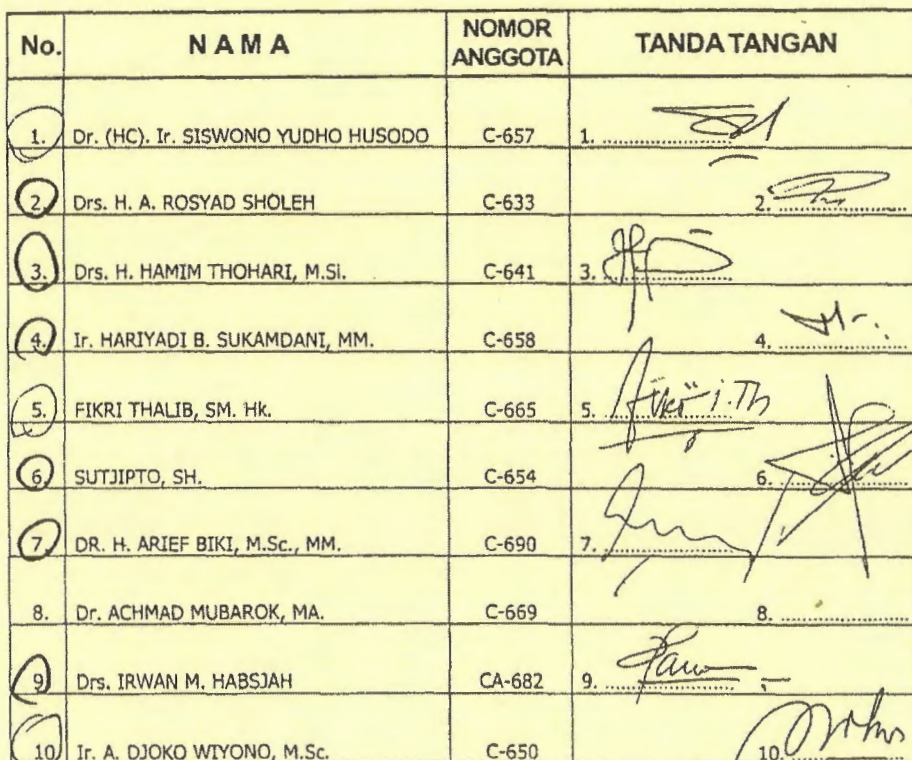 No. N A M A NOMOR ANGGOTA TANDA TANGAN
1. Dr. (HC). Ir. SISWONO YUDHO HUSODO C-657 1. ....................
2. Drs. H. A. ROSYAD SHOLEH C-633 2. ....................
3. Drs. H. HAMIM THOHARI, M.Si. C-641 3. ....................
4. Ir. HARIYADI B. SUKAMDANI, MM. C-658 4. ....................
5. FIKRI THALIB, SM. Hk. C-665 5. ....................
6. SUTJIPTO, SH. C-654 6. ....................
7. DR. H. ARIEF BIKI, M.Sc., MM. C-690 7. ....................
8. Dr. ACHMAD MUBAROK, MA. C-669 8. ....................
9. Drs. IRWAN M. HABSJAH CA-682 9. ....................
10. Ir. A. DJOKO WIYONO, M.Sc. C-650 10. ....................